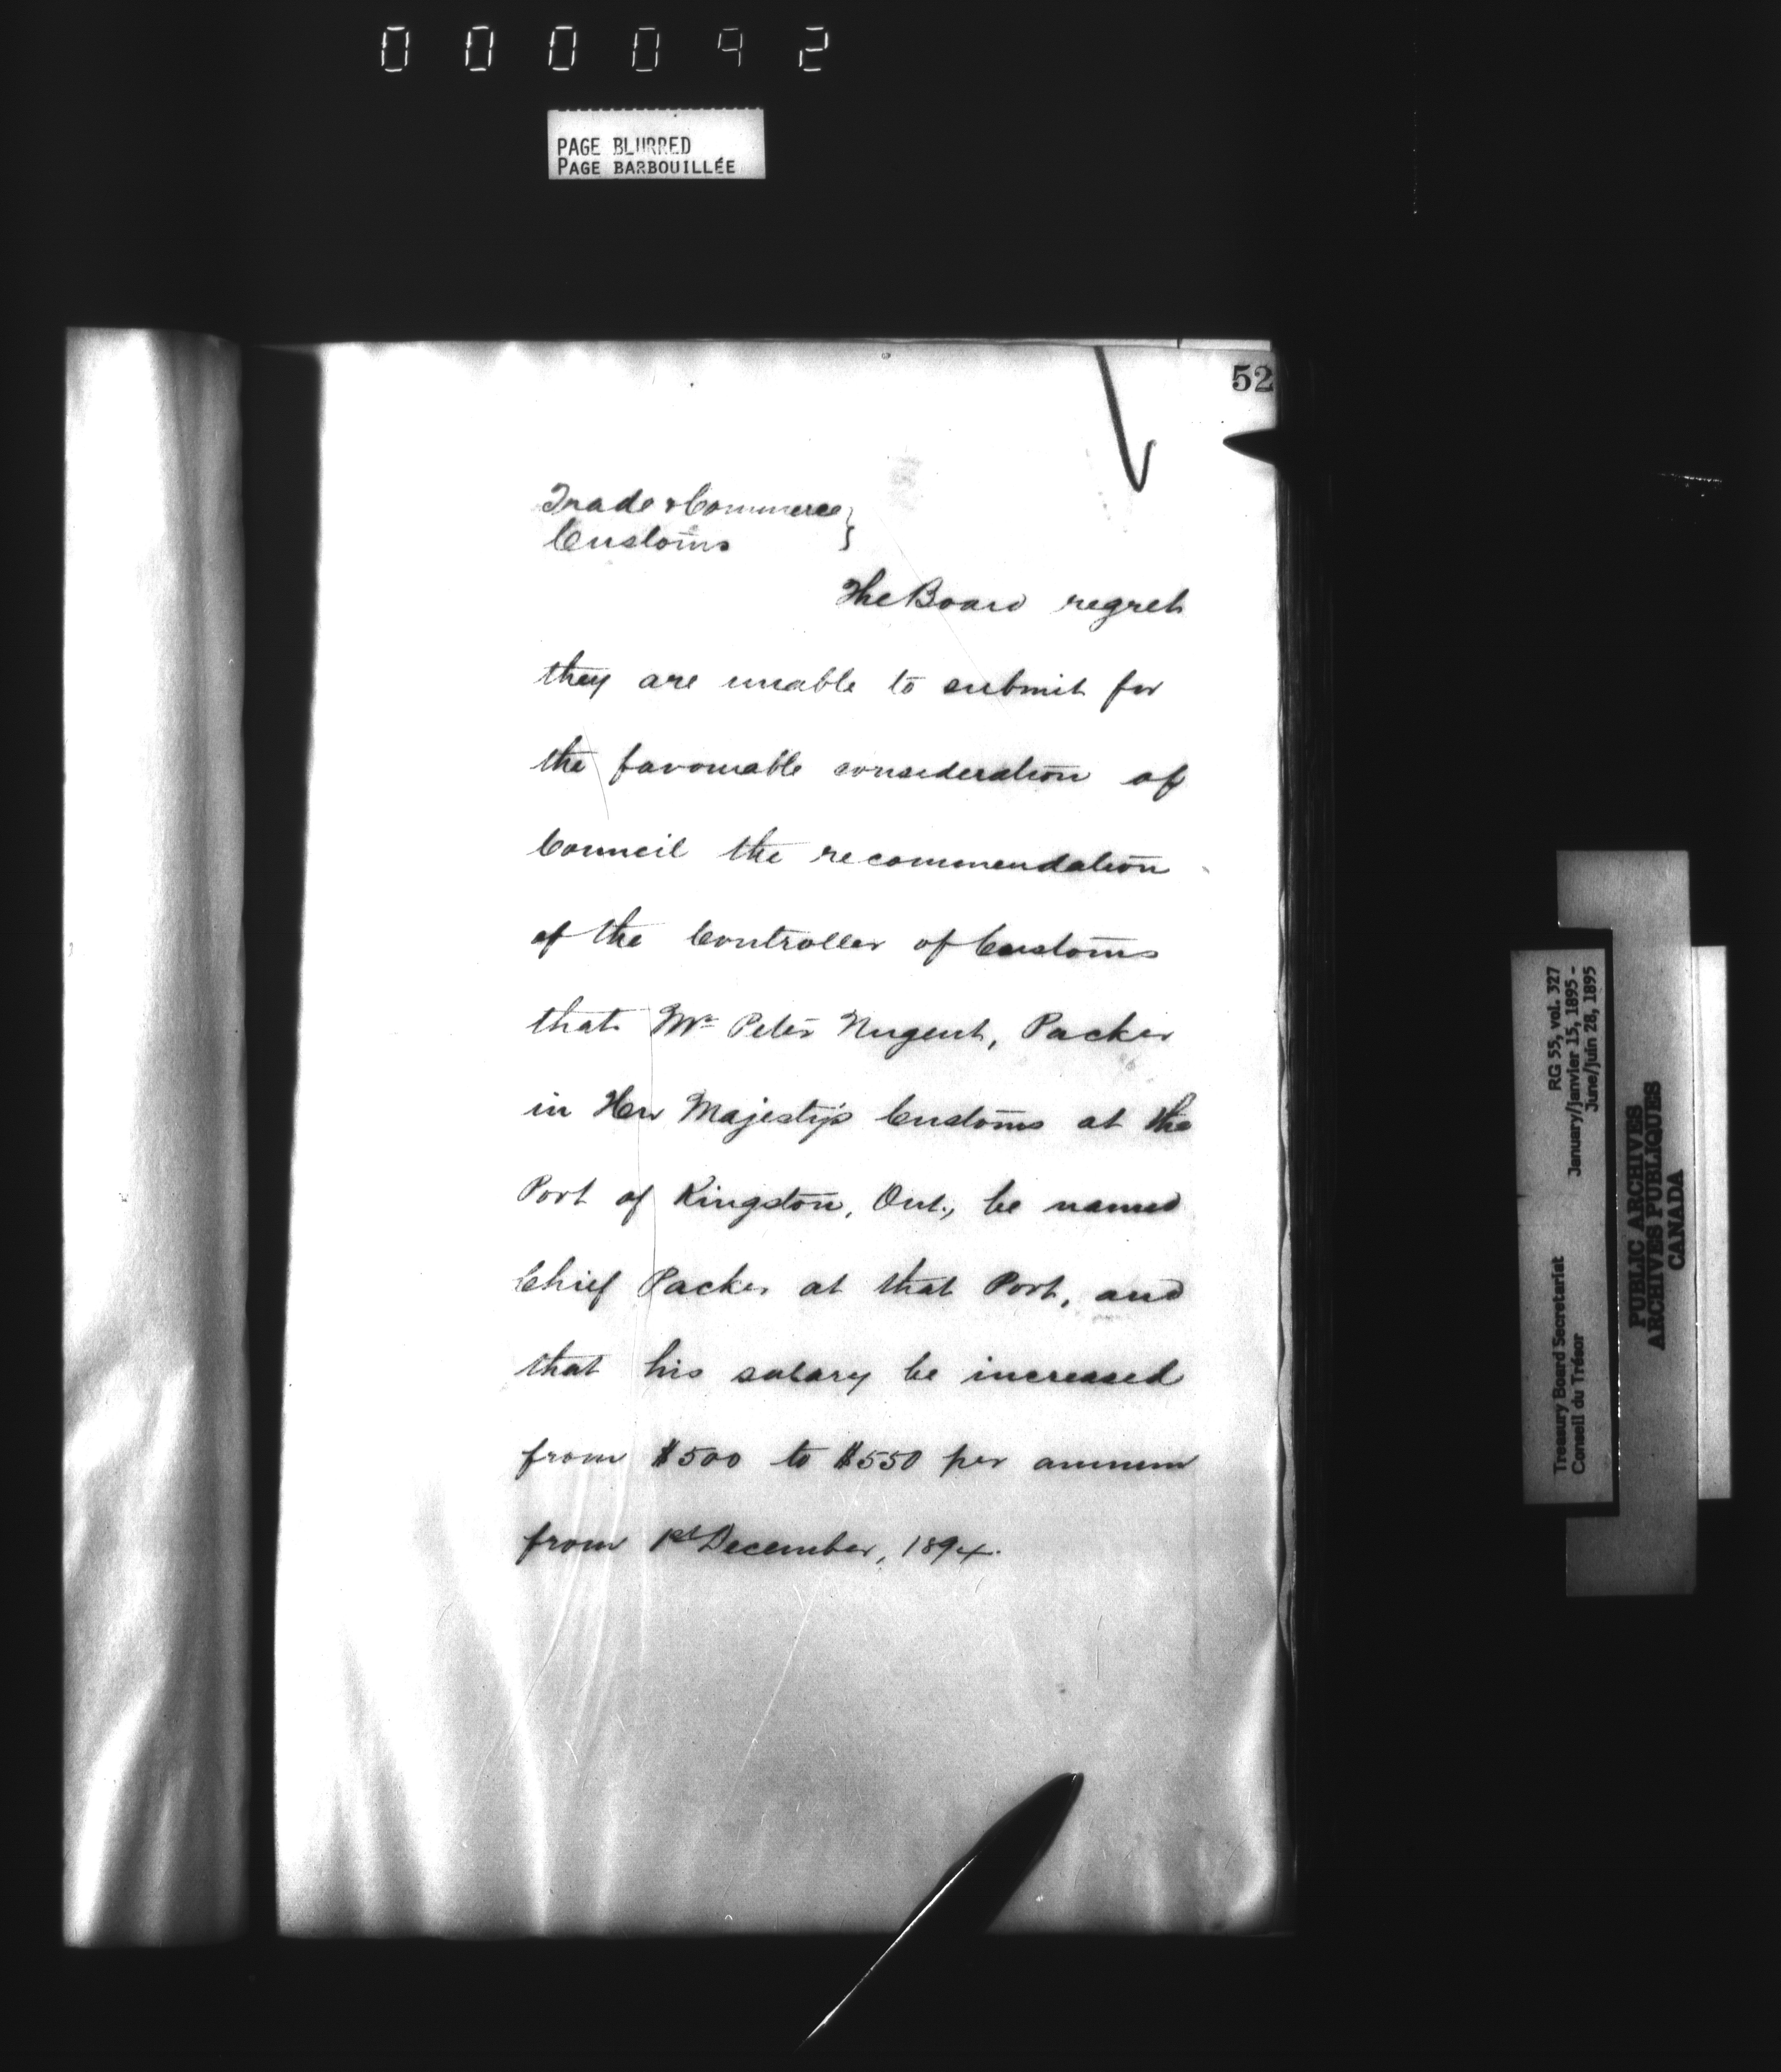 000092
PAGE BLURRED
PAGE BARBOUILLÉE
52
Trade & Commerce }
Customs
The Board regret
they are unable to submit for
the favourable consideration of
Council the recommendation
of the Controller of Customs
that Mr Peter Nugent, Packer
in Her Majesty's Customs at the
Port of Kingston, Ont., be named
Chief Packer at that Port, and
that his salary be increased
from $500 to $550 per annum
from 1st December, 1894.
Treasury Board Secretariat RG 55, vol. 327
Conseil du Trésor January/janvier 15, 1895 -
June/juin 28, 1895
PUBLIC ARCHIVES
ARCHIVES PUBLIQUES
CANADA